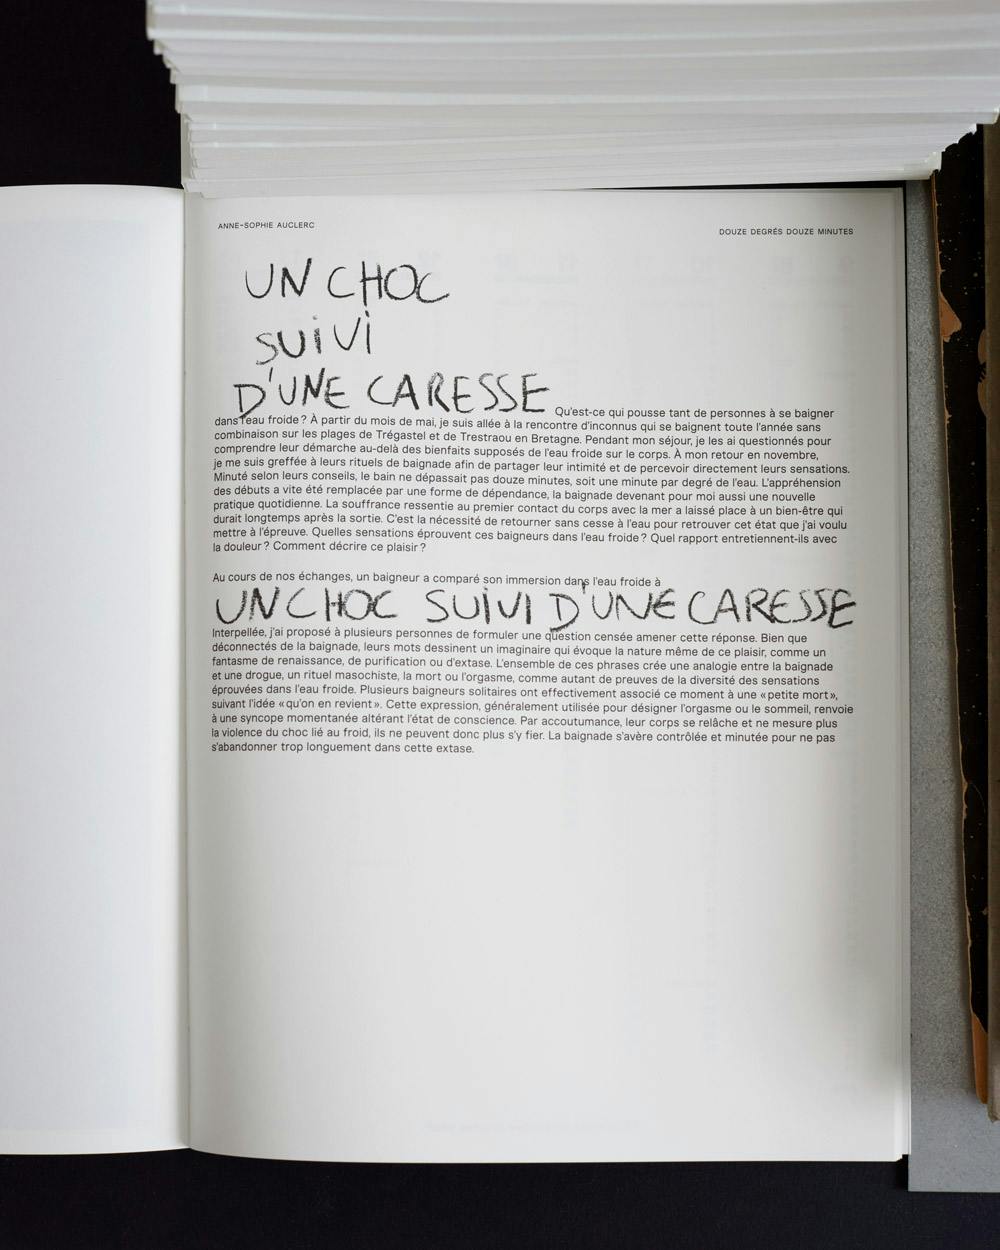 ANNE-SOPHIE AUCLERC
DOUZE DEGRÉS DOUZE MINUTES
UN CHOC
SUIVI
D'UNE CARESSE
Qu'est-ce qui pousse tant de personnes à se baigner
dans l'eau froide ? À partir du mois de mai, je suis allée à la rencontre d'inconnus qui se baignent toute l'année sans
combinaison sur les plages de Trégastel et de Trestraou en Bretagne. Pendant mon séjour, je les ai questionnés pour
comprendre leur démarche au-delà des bienfaits supposés de l'eau froide sur le corps. À mon retour en novembre,
je me suis greffée à leurs rituels de baignade afin de partager leur intimité et de percevoir directement leurs sensations.
Minuté selon leurs conseils, le bain ne dépassait pas douze minutes, soit une minute par degré de l'eau. L'appréhension
des débuts a vite été remplacée par une forme de dépendance, la baignade devenant pour moi aussi une nouvelle
pratique quotidienne. La souffrance ressentie au premier contact du corps avec la mer a laissé place à un bien-être qui
durait longtemps après la sortie. C'est la nécessité de retourner sans cesse à l'eau pour retrouver cet état que j'ai voulu
mettre à l'épreuve. Quelles sensations éprouvent ces baigneurs dans l'eau froide ? Quel rapport entretiennent-ils avec
la douleur ? Comment décrire ce plaisir ?
Au cours de nos échanges, un baigneur a comparé son immersion dans l'eau froide à
UN CHOC SUIVI D'UNE CARESSE
Interpellée, j'ai proposé à plusieurs personnes de formuler une question censée amener cette réponse. Bien que
déconnectés de la baignade, leurs mots dessinent un imaginaire qui évoque la nature même de ce plaisir, comme un
fantasme de renaissance, de purification ou d'extase. L'ensemble de ces phrases crée une analogie entre la baignade
et une drogue, un rituel masochiste, la mort ou l'orgasme, comme autant de preuves de la diversité des sensations
éprouvées dans l'eau froide. Plusieurs baigneurs solitaires ont effectivement associé ce moment à une « petite mort »,
suivant l'idée « qu'on en revient ». Cette expression, généralement utilisée pour désigner l'orgasme ou le sommeil, renvoie
à une syncope momentanée altérant l'état de conscience. Par accoutumance, leur corps se relâche et ne mesure plus
la violence du choc lié au froid, ils ne peuvent donc plus s'y fier. La baignade s'avère contrôlée et minutée pour ne pas
s'abandonner trop longuement dans cette extase.